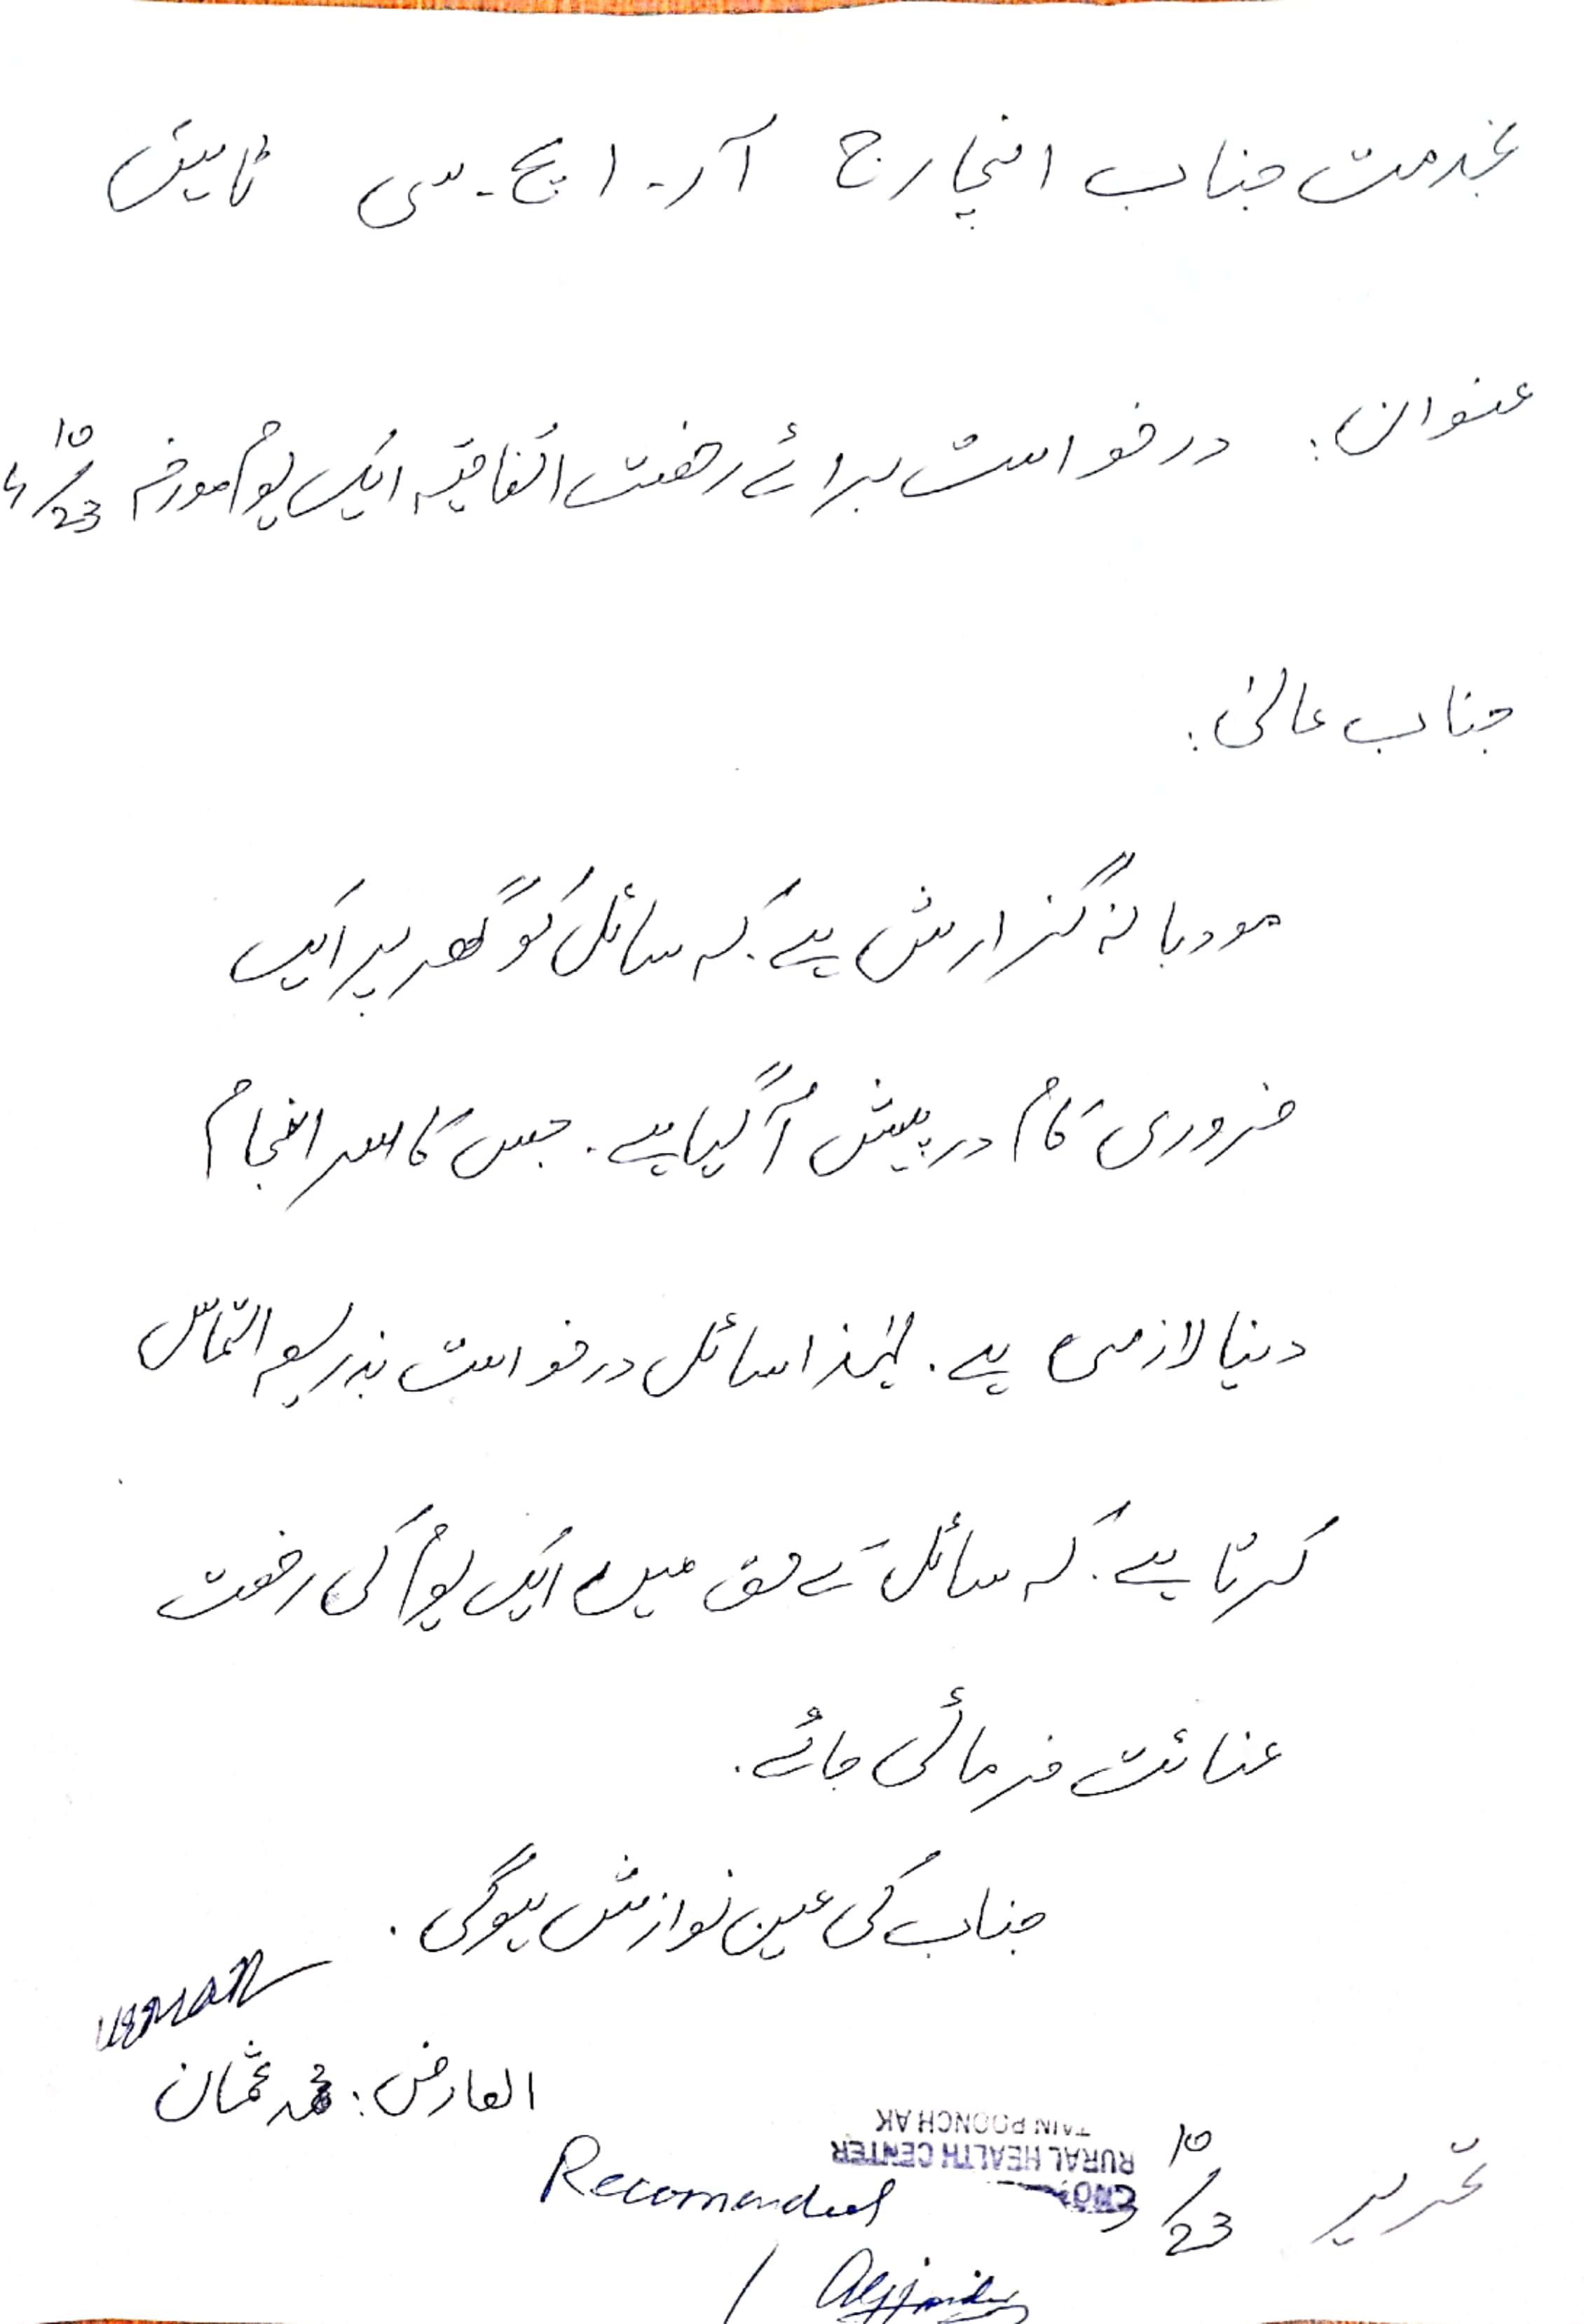 بخدمت جناب انچارج آر۔ ایچ۔ سی ٹائیں
عنوان: درخواست برائے رخصت اتفاقیہ ایک یوم مورخہ 10/23
جناب عالیٰ:
مودبانہ گزارش ہے۔ کہ سائل کو گھر پر ایک
ضروری کام درپیش آ گیا ہے۔ جس کا سر انجام
دینا لازمی ہے۔ لہٰذا سائل درخواست بذریعہ التماس
کرتا ہے۔ کہ سائل کے حق میں ایک یوم کی رخصت
عنائت فرمائی جائے۔
جناب کی عین نوازش ہوگی۔
العارض: محمد عثمان
تحریر 10/23
TAIN POONCH AK
RURAL HEALTH CENTER
Recomended